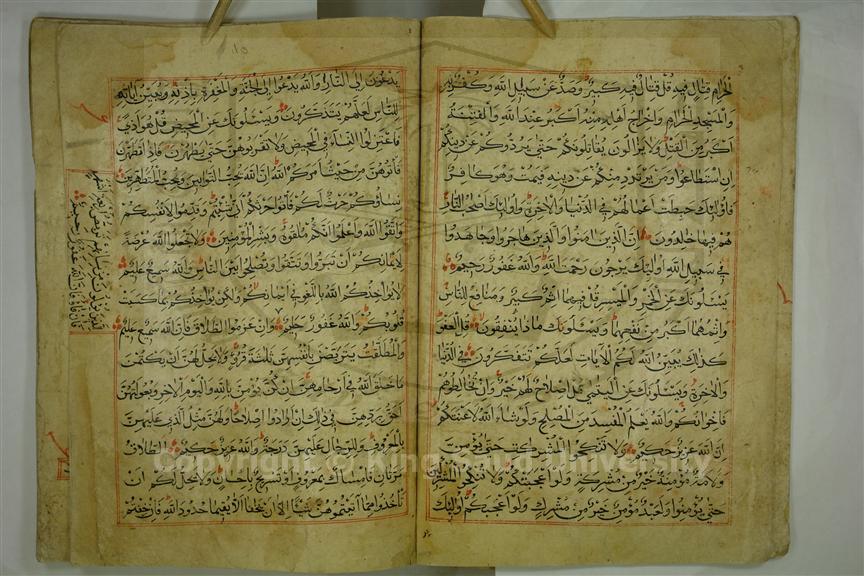 الحرام قتال فيه قل قتال فيه كبير وصد عن سبيل الله وكفر به
والمسجد الحرام واخراج اهله منه اكبر عند الله والفتنة
اكبر من القتل ولا يزالون يقاتلونكم حتى يردوكم عن دينكم
ان استطاعوا ومن يرتدد منكم عن دينه فيمت وهو كافر
فاولئك حبطت اعمالهم في الدنيا والاخرة واولئك اصحاب النار
هم فيها خالدون ان الذين امنوا والذين هاجروا وجاهدوا
في سبيل الله اولئك يرجون رحمت الله والله غفور رحيم
يسئلونك عن الخمر والميسر قل فيهما اثم كبير ومنافع للناس
واثمهما اكبر من نفعهما ويسئلونك ماذا ينفقون قل العفو
كذلك يبين الله لكم الايات لعلكم تتفكرون في الدنيا
والاخرة ويسئلونك عن اليتمى قل اصلاح لهم خير وان تخالطوهم
فاخوانكم والله يعلم المفسد من المصلح ولو شاء الله لاعنتكم
ان الله عزيز حكيم ولا تنكحوا المشركت حتى يؤمن
ولامة مؤمنة خير من مشركة ولو اعجبتكم ولا تنكحوا المشركين
حتى يؤمنوا ولعبد مؤمن خير من مشرك ولو اعجبكم اولئك
يدعون الى النار والله يدعوا الى الجنة والمغفرة باذنه ويبين اياته
للناس لعلهم يتذكرون ويسئلونك عن المحيض قل هو اذى
فاعتزلوا النساء في المحيض ولا تقربوهن حتى يطهرن فاذا تطهرن
فاتوهن من حيث امركم الله ان الله يحب التوابين ويحب المتطهرين
نساؤكم حرث لكم فاتوا حرثكم انى شئتم وقدموا لانفسكم
واتقوا الله واعلموا انكم ملقوه وبشر المؤمنين ولا تجعلوا الله عرضة
لايمانكم ان تبروا وتتقوا وتصلحوا بين الناس والله سميع عليم
لا يؤاخذكم الله باللغو في ايمانكم ولكن يؤاخذكم بما كسبت
قلوبكم والله غفور حليم وان عزموا الطلاق فان الله سميع عليم
والمطلقت يتربصن بانفسهن ثلثة قروء ولا يحل لهن ان يكتمن
ما خلق الله في ارحامهن ان كن يؤمن بالله واليوم الاخر وبعولتهن
احق بردهن في ذلك ان ارادوا اصلاحا ولهن مثل الذي عليهن
بالمعروف وللرجال عليهن درجة والله عزيز حكيم الطلاق
مرتان فامساك بمعروف او تسريح باحسان ولا يحل لكم ان
تأخذوا مما آتيتموهن شيئا الا ان يخافا الا يقيما حدود الله فان خفتم
للذين يؤلون من نسائهم تربص اربعة اشهر
فان فاءو فان الله غفور رحيم
Copyright © King Saud University